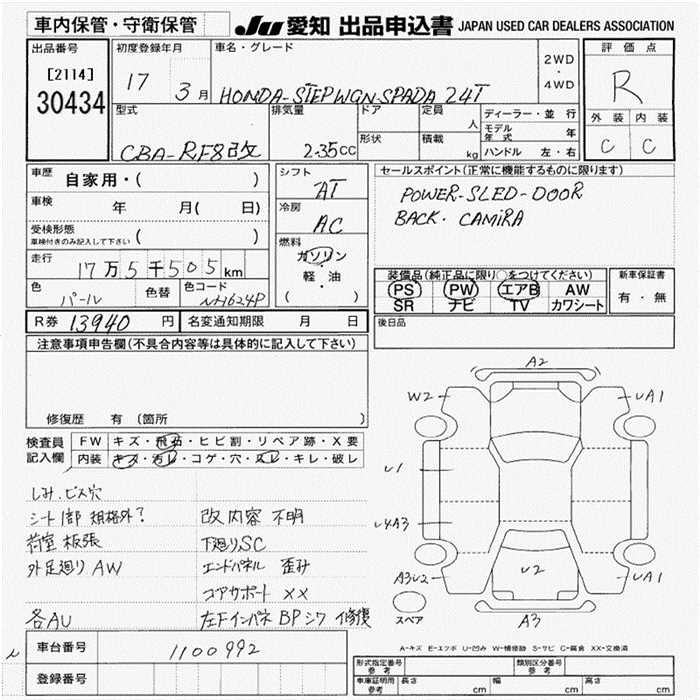 車内保管・守衛保管
JU 愛知 出品申込書 JAPAN USED CAR DEALERS ASSOCIATION
出品番号
[2114]
30434
初度登録年月
17 3月
車名・グレード
HONDA-STEPWGN-SPADA 24T
2WD
・
4WD
評価点
R
外装 内装
C C
型式
CBA-RF8改
排気量
2.35CC
ドア
形状
定員
人
積載
kg
ディーラー・並行
モデル年式 年
ハンドル 左・右
車歴 自家用・( )
車検 年 月( 日)
受検形態
車検付きのみ記入して下さい ( )
走行
17万5千505km
色
パール
色替
色コード
NH624P
シフト
AT
冷房
AC
燃料
ガソリン
・
軽・油
( )
セールスポイント(正常に機能するものに限ります)
POWER-SLED-DOOR
BACK-CAMIRA
装備品(純正品に限り○をつけてください)
PS PW エアB AW
SR ナビ TV カワシート
新車保証書
有・無
後日品
R券 13940 円
名変通知期限 月 日
注意事項申告欄(不具合内容等は具体的に記入して下さい)
修復歴 有(箇所 )
検査員
記入欄
FW キズ・飛石・ヒビ割・リペア跡・X要
内装 キズ・汚レ・コゲ・穴・スレ・キレ・破レ
しみ.ビス穴
シート1部 規格外? 改内容 不明
荷室 板張 下廻りSC
外足廻りAW エンドパネル 歪み
コアサポート XX
各AU 左Fインパネ BPシワ 修復
車台番号 1100992
登録番号
A2
W2
UA1
U1
U4A3
A3U2
U2
UA1
A3
スペア
A-キズ E-エクボ U-凹み W-補修跡 S-サビ C-腐食 XX-交換済
形式指定番号
参考
類別区分番号
参考
車庫証明用
参考
長さ cm
幅 cm
高さ cm